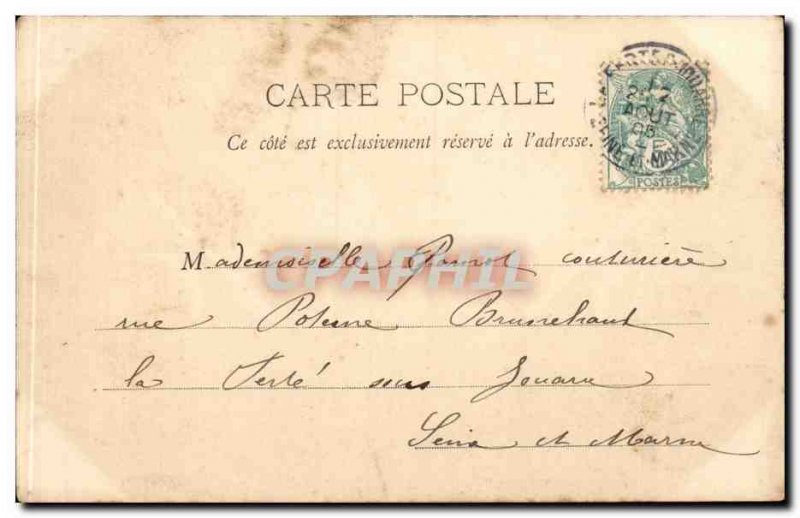 CARTE POSTALE
Ce côté est exclusivement réservé à l'adresse.
2 - 17
AOUT
05
SEINE ET MARNE
5
POSTES
CPAPHIL
Mademoiselle couturière
rue Poterne Brunehaut
la Ferté sous Jouarre
Seine et Marne